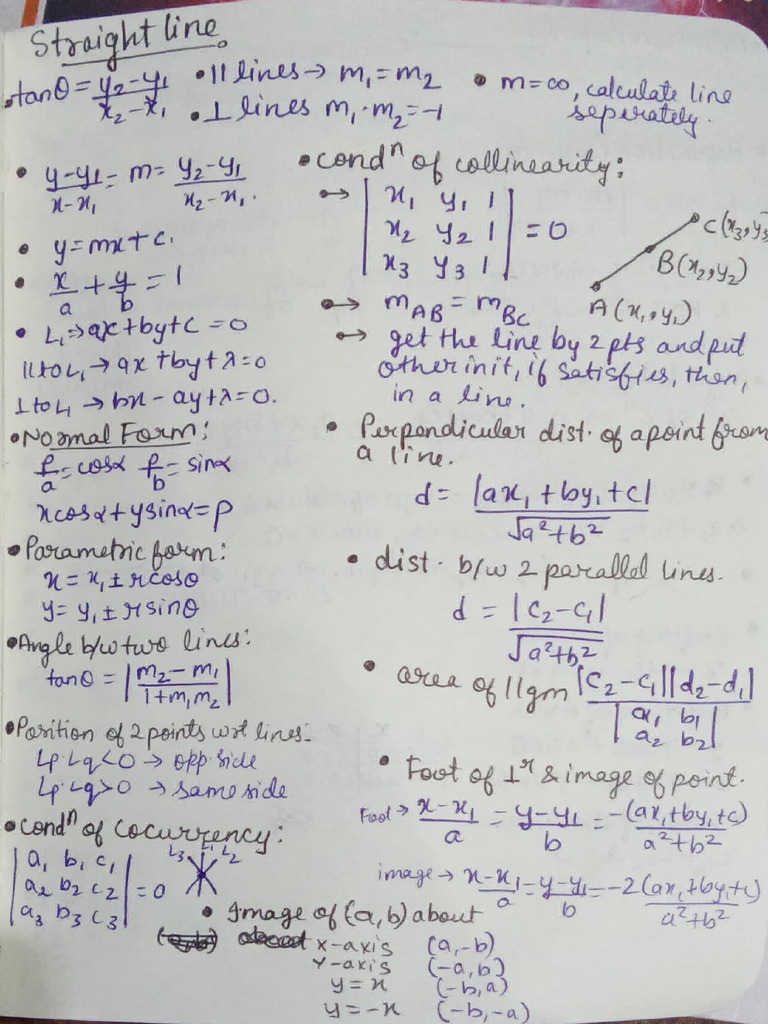 Straight line.
• tanθ = y₂-y₁ / x₂-x₁ • || lines → m₁ = m₂ • m = ∞, calculate line seperately.
• ⊥ lines m₁·m₂ = -1
• y-y₁ / x-x₁ = m = y₂-y₁ / x₂-x₁.
• y = mx + c.
• x/a + y/b = 1
• L₁ → ax + by + c = 0
|| to L₁ → ax + by + λ = 0
⊥ to L₁ → bx - ay + λ = 0.
• Normal Form:
p/a = cosα p/b = sinα
xcosα + ysinα = p
• Parametric form:
x = x₁ ± rcosθ
y = y₁ ± rsinθ
• Angle b/w two lines:
tanθ = | m₂ - m₁ / 1 + m₁m₂ |
• Position of 2 points wrt lines:
Lp·Lq < 0 → opp side
Lp·Lq > 0 → same side
• condⁿ of cocurrency:
| a₁ b₁ c₁ |
| a₂ b₂ c₂ | = 0
| a₃ b₃ c₃ |
L₃ L₁ L₂
• condⁿ of collinearity:
↦ | x₁ y₁ 1 |
| x₂ y₂ 1 | = 0
| x₃ y₃ 1 |
C(x₃, y₃
B(x₂, y₂)
A(x₁, y₁)
↦ mAB = mBC
↦ get the line by 2 pts and put
other in it, if satisfies, then,
in a line.
• Perpendicular dist. of a point from
a line.
d = |ax₁ + by₁ + c| / √a²+b²
• dist. b/w 2 parallel lines.
d = |c₂ - c₁| / √a²+b²
• area of ||gm |c₂-c₁||d₂-d₁| / | a₁ b₁
a₂ b₂ |
• Foot of ⊥ʳ & image of point.
Foot → x-x₁ / a = y-y₁ / b = -(ax₁+by₁+c) / a²+b²
image → x-x₁ / a = y-y₁ / b = -2(ax₁+by₁+c) / a²+b²
• Image of (a,b) about
x-axis (a,-b)
Y-axis (-a,b)
y = x (-b,a)
y = -x (-b,-a)